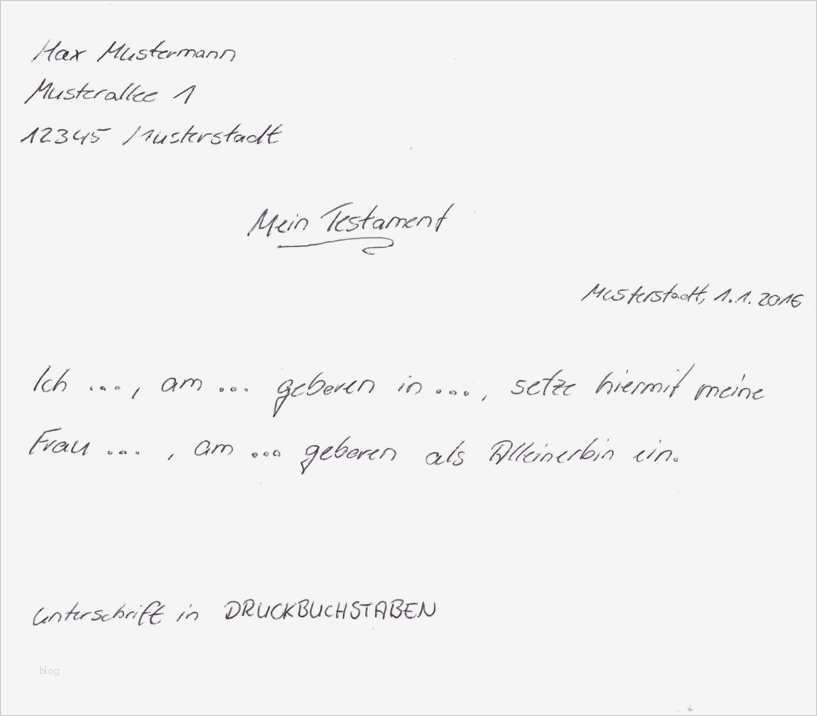 Max Mustermann
Musterallee 1
12345 Musterstadt
Mein Testament
Musterstadt, 1.1.2016
Ich ..., am ... geboren in ..., setze hiermit meine
Frau ... , am ... geboren als Alleinerbin ein.
Unterschrift in DRUCKBUCHSTABEN
blog